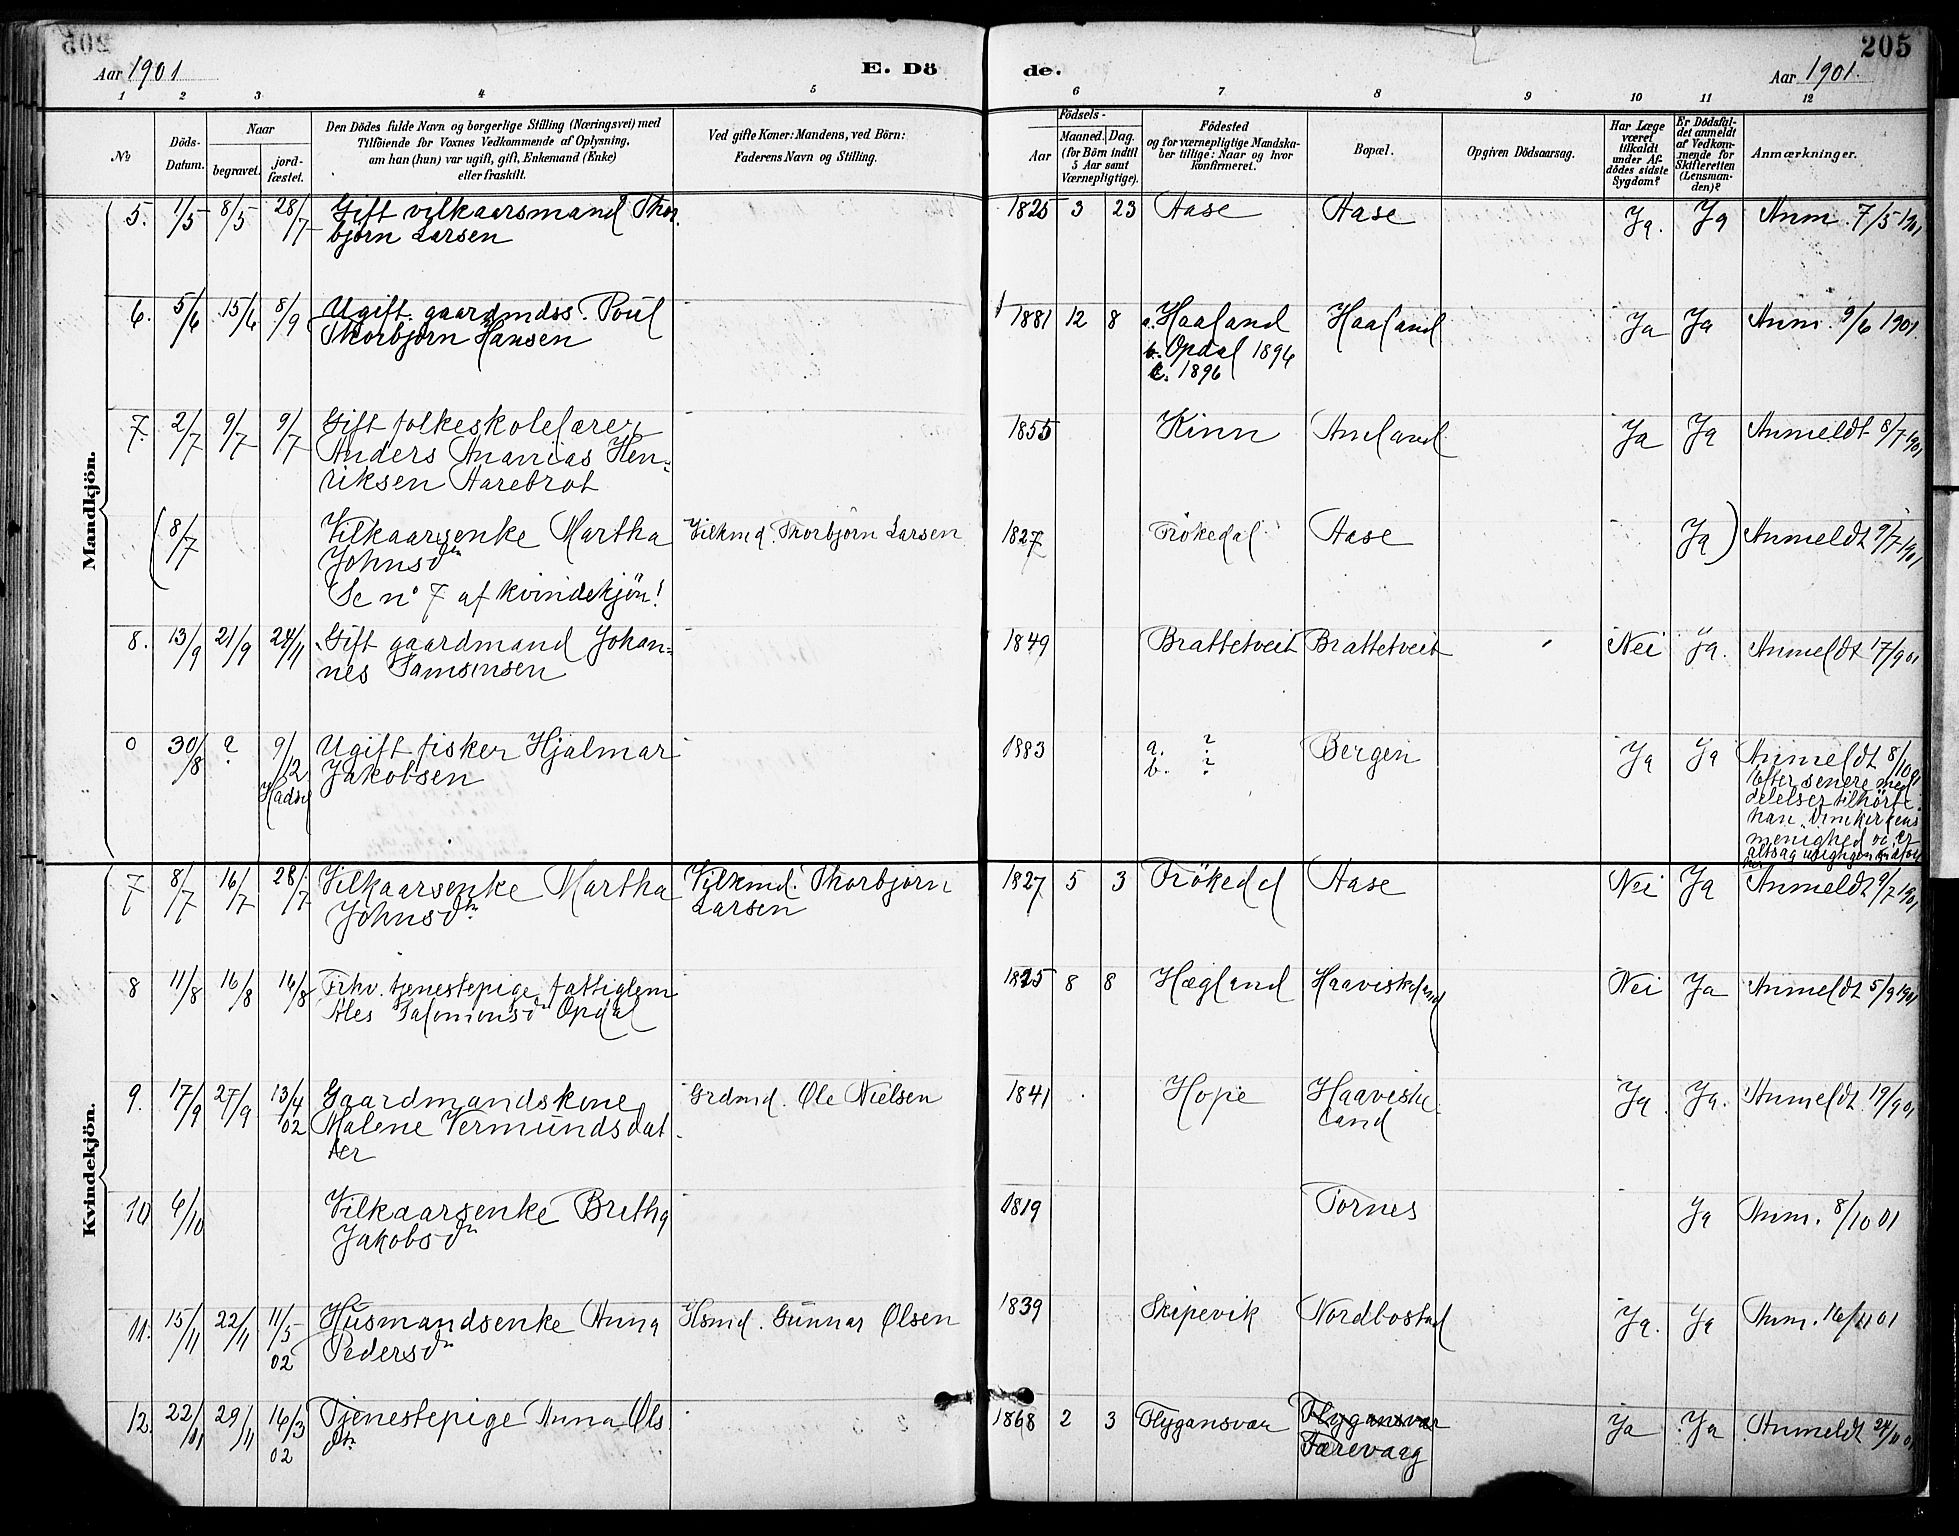 205
Aar 1901
E. Döde.
Aar 1901.
1 2 3 4 5 6 7 8 9 10 11 12
No
Döds-Datum.
Naar
begravet.
jord-fæstet.
Den Dödes fulde Navn og borgerlige Stilling (Næringsvei) med
Tilföiende for Voxnes Vedkommende af Oplysning,
om han (hun) var ugift, gift, Enkemand (Enke)
eller fraskilt.
Ved gifte Koner: Mandens, ved Börn:
Faderens Navn og Stilling.
Födsels-
Aar
Maaned. Dag.
(for Börn indtil
5 Aar samt
Værnepligtige).
Födested
og for værnepligtige Mandska-
ber tillige: Naar og hvor
konfirmeret.
Bopæl.
Opgiven Dödsaarsag.
Har Læge
været
tilkaldt
under Af-
dödes sidste
Sygdom?
Er Dödsfal-
det anmeldt
af Vedkom-
mende for
Skifteretten
(Lensman-
den)?
Anmærkninger.
Mandkjön.
5. 1/5 8/5 28/7 Gift vilkaarsmand Thor-
björn Larsen
1825 3 23 Aase Aase Ja. Ja Anm. 7/5 1901
6. 5/6 15/6 8/9 Ugift gaardmdss. Poul
Thorbjörn Hansen
1881 12 8 a. Haaland Haaland Ja Ja Anm. 9/6 1901.
b. Opdal 1894
c. 1896
7. 2/7 9/7 9/7 Gift folkeskolelærer
Anders Ananias Hen-
riksen Aarebrot
1855 Kinn Ameland Ja Ja Anmeldt 8/7 1901
(8/7 Vilkaarsenke Martha Vilkmd. Thorbjörn Larsen
Johnsdtr
Se no 7 af kvindekjön!
1827 Frökedal Aase Ja) Anmeldt 9/7 1901
8. 13/9 21/9 24/11 Gift gaardmand Johan-
nes Samsonsen
1849 Brattetveit Brattetveit Nei Ja. Anmeldt 17/9 01
0 30/8 ? 9/12 Ugift fisker Hjalmar
Jakobsen
1883 a. ? Bergen Ja Ja Anmeldt 8/10 01
b. ?
Efter senere med
delelser tilhörte
han Domkirkens
menighed og er
Kvindekjön.
7 8/7 16/7 28/7 Vilkaarsenke Martha Vilkmd. Thorbjörn
Johnsdtr Larsen
1827 5 3 Frökedal Aase Nei Ja Anmeldt 9/7 1901
8 11/8 16/8 16/8 Frhv. tjenestepige, fattiglem
Ales Salomonsdtr Opdal
1825 8 8 Hægland Haaviskeland Nei Ja Anmeldt 5/9 1901
9. 17/9 27/9 13/4 02 Gaardmandskone Grdmd. Ole Nielsen
Malene Vermundsdat
ter
1841 Hope Haaviske-
land Ja. Ja. Anmeldt 19/9 01
10 6/10 Vilkaarsenke Britha
Jakobsdtr
1819 Tornes Ja Anm. 8/10 01
11. 15/11 22/11 11/5 02 Husmandsenke Anna Hsmd. Gunnar Olsen
Pedersdtr
1839 Skipevik Nordbostad Ja. Ja Anm. 16/11 01
12. 22/11 29/11 16/3 02 Tjenestepige Anna Ols
dtr
1868 2 3 Flygansvær Flygansvær Ja Ja Anmeldt 24/11 01
Færevaag